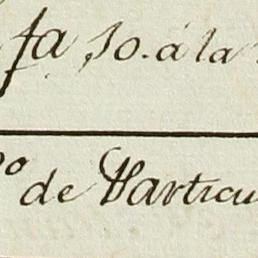 fa so. á la
o de Particu